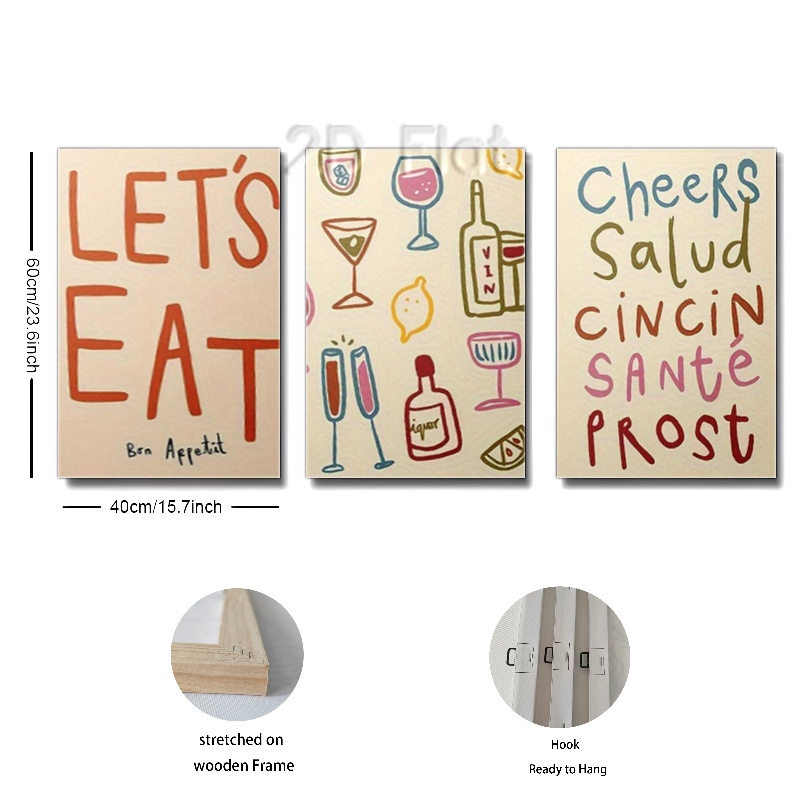 2D Flat
LET'S
EAT
Bon Appetit
VIN
liquor
Cheers
Salud
CINCIN
SANTÉ
PROST
60cm/23.6inch
40cm/15.7inch
stretched on
wooden Frame
Hook
Ready to Hang